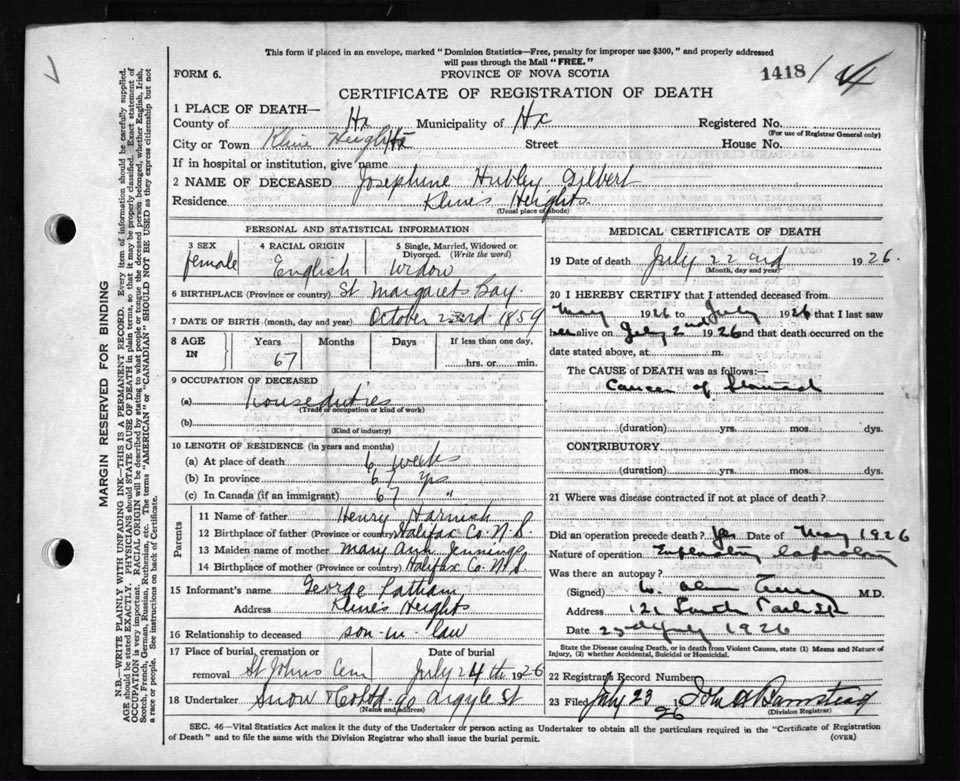 This form if placed in an envelope, marked "Dominion Statistics—Free, penalty for improper use $300," and properly addressed
will pass through the Mail "FREE."
FORM 6.
PROVINCE OF NOVA SCOTIA
1418
CERTIFICATE OF REGISTRATION OF DEATH
1 PLACE OF DEATH—
County of Hx Municipality of Hx Registered No.
(For use of Registrar General only)
City or Town Kline Heights Street House No.
If in hospital or institution, give name
2 NAME OF DECEASED Josephine Hubley Gilbert
Residence Klines Heights.
(Usual place of abode)
PERSONAL AND STATISTICAL INFORMATION
3 SEX female
4 RACIAL ORIGIN English
5 Single, Married, Widowed or Divorced. (Write the word) widow
6 BIRTHPLACE (Province or country) St Margarets Bay.
7 DATE OF BIRTH (month, day and year) October 23rd 1859
8 AGE IN Years Months Days If less than one day,
67 hrs. or min.
9 OCCUPATION OF DECEASED
(a) houseduties
(Trade or occupation or kind of work)
(b)
(Kind of industry)
10 LENGTH OF RESIDENCE (in years and months)
(a) At place of death 6 weeks
(b) In province 67 yrs
(c) In Canada (if an immigrant) 67 "
Parents
11 Name of father Henry Harnish
12 Birthplace of father (Province or country) Halifax Co. N.S.
13 Maiden name of mother Mary Ann Jennings
14 Birthplace of mother (Province or country) Halifax Co N.S
15 Informant's name George Latham
Address Klines Heights
16 Relationship to deceased son-in-law
17 Place of burial, cremation or removal Date of burial
St Johns Cem July 24th 1926
18 Undertaker Snow & Co Ltd 90 Argyle St
(Name and address)
MEDICAL CERTIFICATE OF DEATH
19 Date of death July 22nd 1926.
(Month, day and year)
20 I HEREBY CERTIFY that I attended deceased from
May 1926 to July 1926 that I last saw
her alive on July 2nd 1926 and that death occurred on the
date stated above, at m.
The CAUSE OF DEATH was as follows:—
Cancer of Stomach
(duration) yrs. mos. dys.
CONTRIBUTORY
(duration) yrs. mos. dys.
21 Where was disease contracted if not at place of death?
Did an operation precede death? Yes Date of May 1926
Nature of operation Exploratory laparotomy
Was there an autopsy?
(Signed) M.D.
Address 121 South Park St
Date 23rd July 1926
State the Disease causing Death, or in death from Violent Causes, state (1) Means and Nature of
Injury, (2) whether Accidental, Suicidal or Homicidal.
22 Registrar's Record Number
23 Filed July 23 1926 John A Barnstead
(Division Registrar)
SEC. 46—Vital Statistics Act makes it the duty of the Undertaker or person acting as Undertaker to obtain all the particulars required in the "Certificate of Registration
of Death" and to file the same with the Division Registrar who shall issue the burial permit.
(OVER)
MARGIN RESERVED FOR BINDING
N.B.—WRITE PLAINLY, WITH UNFADING INK—THIS IS A PERMANENT RECORD. Every item of information should be carefully supplied.
AGE should be stated EXACTLY. PHYSICIANS should STATE CAUSE OF DEATH in plain terms, so that it may be properly classified. Exact statement of
OCCUPATION is very important. RACIAL ORIGIN will be described by stating to what people or tongue the deceased person belonged, whether English, Irish,
Scotch, French, German, Russian, Ruthenian, etc. The terms "AMERICAN" or "CANADIAN" SHOULD NOT BE USED as they express citizenship but not
a race or people. See instructions on back of Certificate.